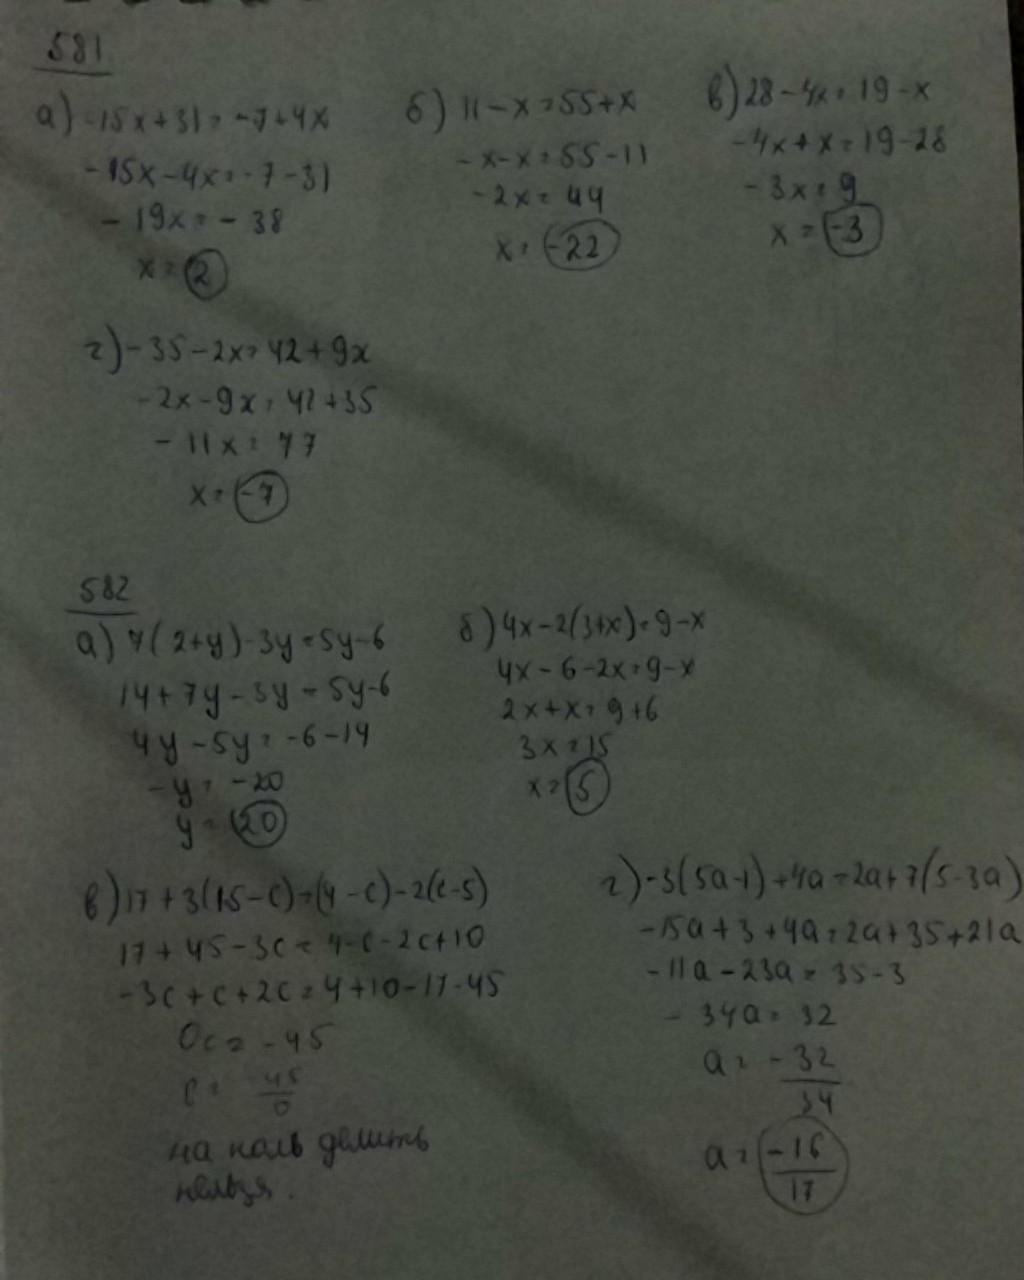 581
а) -15x+31=-7+4x
-15x-4x=-7-31
-19x=-38
x=2
б) 11-x=55+x
-x-x=55-11
-2x=44
x=-22
в) 28-4x=19-x
-4x+x=19-28
-3x=9
x=-3
г) -35-2x=42+9x
-2x-9x=42+35
-11x=77
x=-7
582
а) 7(2+y)-3y=5y-6
14+7y-3y=5y-6
4y-5y=-6-14
-y=-20
y=20
б) 4x-2(3+x)=9-x
4x-6-2x=9-x
2x+x=9+6
3x=15
x=5
в) 17+3(15-c)=(4-c)-2(c-5)
17+45-3c=4-c-2c+10
-3c+c+2c=4+10-17-45
0c=-45
c=-45/0
на ноль делить
нельзя.
г) -3(5a-1)+4a=2a+7(5-3a)
-15a+3+4a=2a+35+21a
-11a-23a=35-3
-34a=32
a=-32/34
a=-16/17